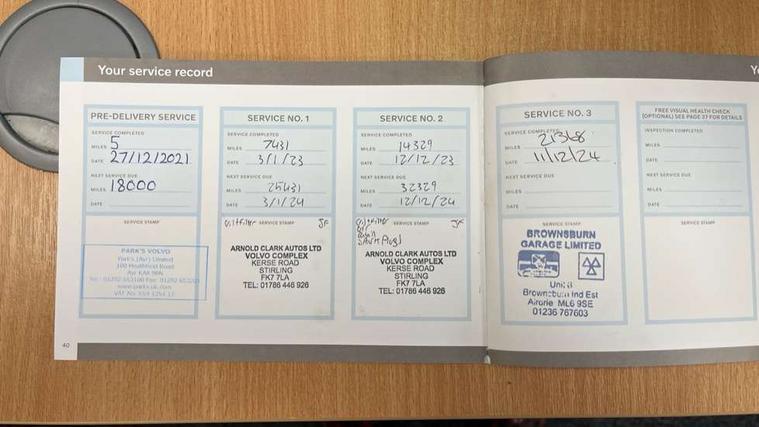 Your service record
PRE-DELIVERY SERVICE
SERVICE COMPLETED
MILES 5
DATE 27/12/2021
NEXT SERVICE DUE
MILES 18000
DATE
SERVICE STAMP
PARK'S VOLVO
Park's (Ayr) Limited
Ayr KA8
SERVICE NO. 1
SERVICE COMPLETED
MILES 7431
DATE 3/1/23
NEXT SERVICE DUE
MILES 25431
DATE 3/1/24
Oil + Filter SERVICE STAMP JF
ARNOLD CLARK AUTOS LTD
VOLVO COMPLEX
KERSE ROAD
STIRLING
FK7 7LA
TEL: 01786 446 926
SERVICE NO. 2
SERVICE COMPLETED
MILES 14329
DATE 12/12/23
NEXT SERVICE DUE
MILES 32329
DATE 12/12/24
Oil + Filter SERVICE STAMP JF
Plugs
ARNOLD CLARK AUTOS LTD
VOLVO COMPLEX
KERSE ROAD
STIRLING
FK7 7LA
TEL: 01786 446 926
40
SERVICE NO. 3
SERVICE COMPLETED
MILES 21368
DATE 11/12/24
NEXT SERVICE DUE
MILES
DATE
SERVICE STAMP
BROWNSBURN
GARAGE LIMITED
Unit 8
Brownsburn Ind Est
Airdrie ML6 9SE
01236 767603
FREE VISUAL HEALTH CHECK
(OPTIONAL) SEE PAGE 37 FOR DETAILS
INSPECTION COMPLETED
MILES
DATE
NEXT SERVICE DUE
MILES
DATE
SERVICE STAMP